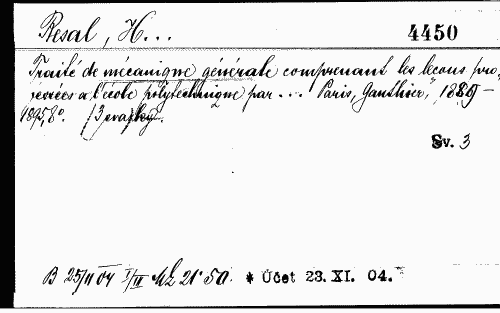 Resal, H...
4450
Traité de mécanique générale comprenant les lecons pro-
fessées a l'école polytechnique par... Paris, Gauthier, 1889-
1895, 8°. /3 svazky.
Sv. 3
B 25/11 04 I/III Mk 21·50. * Účet 23. XI. 04.